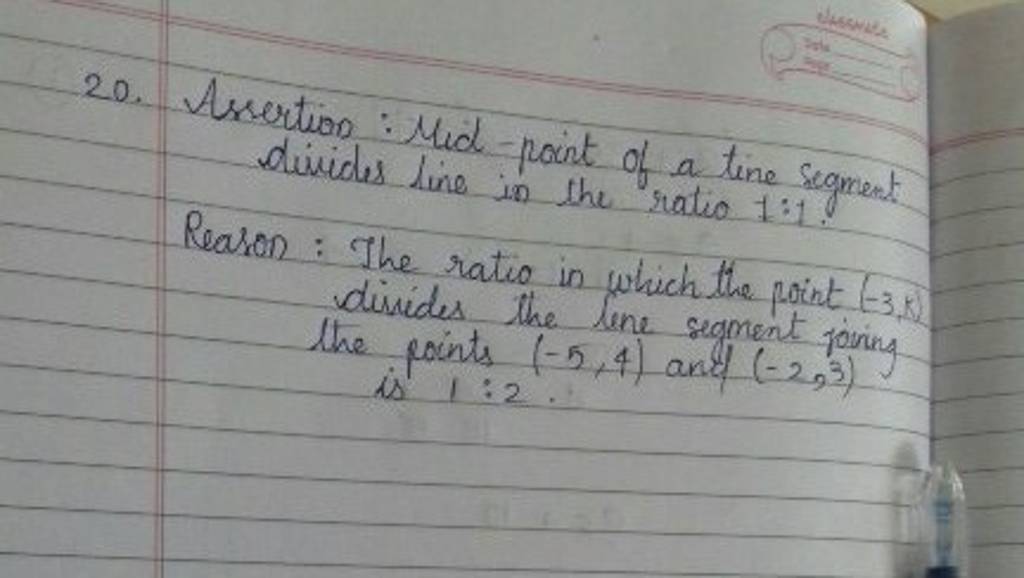 classmate
Date
Page
20. Assertion : Mid-point of a line segment
divides line in the ratio 1:1.
Reason : The ratio in which the point (-3,K)
divides the line segment joining
the points (-5,4) and (-2,3)
is 1:2.